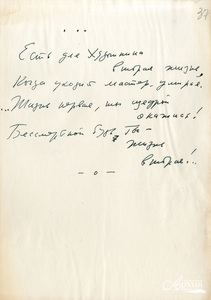 37
...
Есть для Художника
вторая жизнь,
Когда уходит мастер, умирая.
"Жизнь первая, ты щедрой
окажись!
Бессмертной будь, ты –
жизнь
вторая!..
– о –